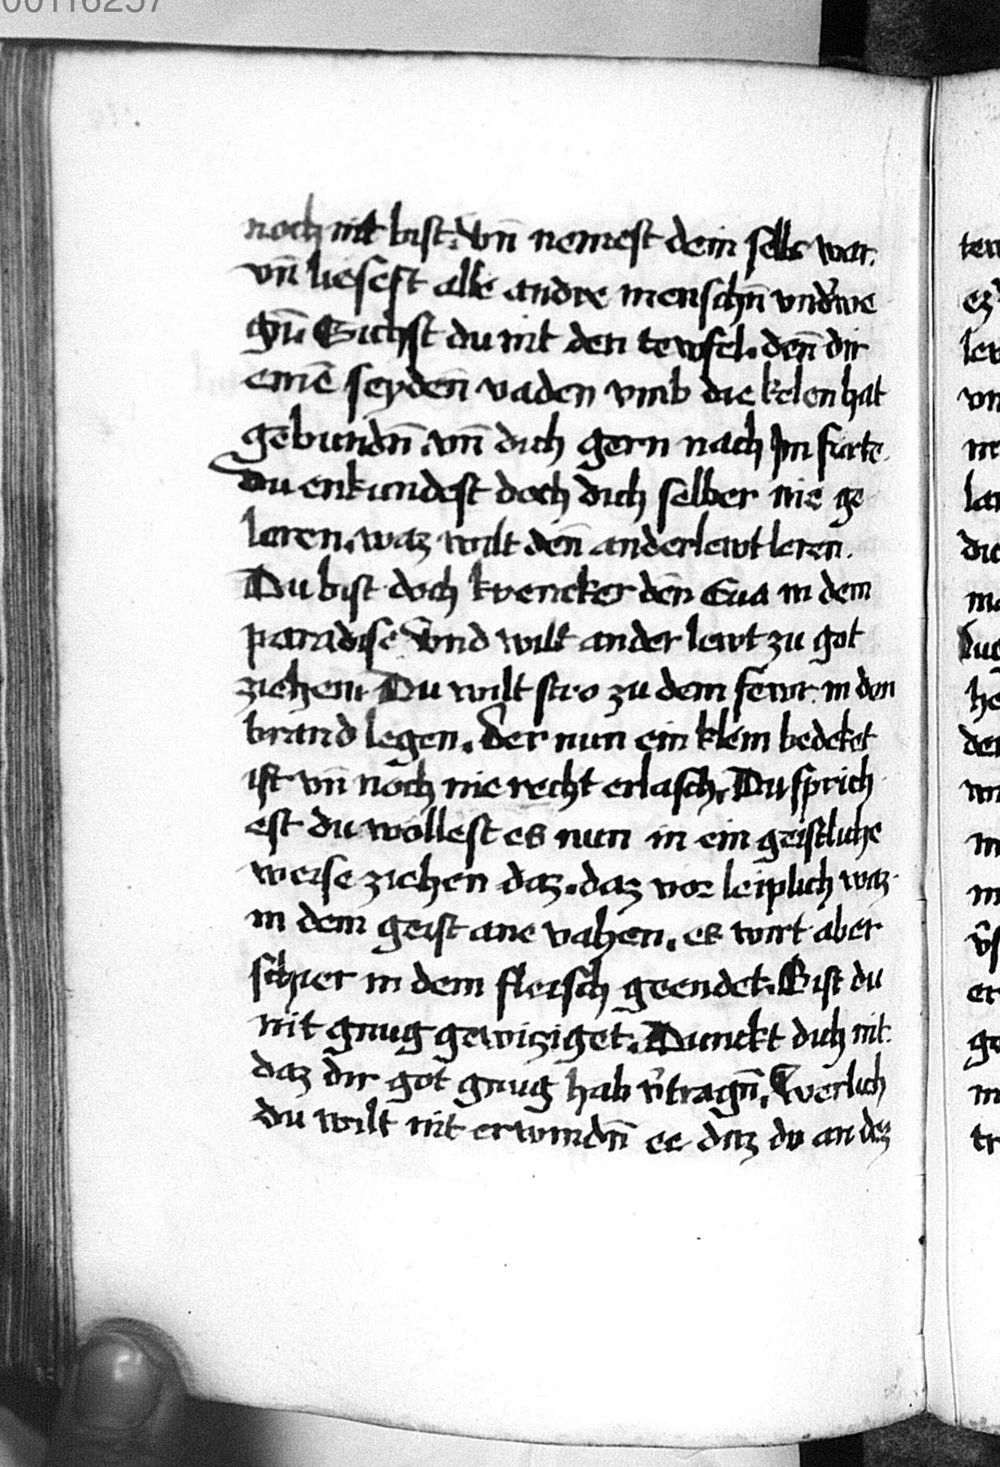 00116257
noch nit bist. vn̄ nemest dein selbs war.
vn̄ liesest alle andre menschn̄ vnd'we
gn̄. Sichst du nit den tewfel. den̄ dir
einē seyden vaden vmb die kelen hat
gebundn̄. vn̄ dich gern nach Im fürte.
Du enkundest doch dich selber nie ge
leren. waz wilt den̄ ander lewt leren.
Du bist doch krencker den Eua in dem
paradise vnd wilt ander lewt zu got
ziehen. Du wilt stro zu dem fewr in den
brand legen. der nun ein klein bedeket
ist vn̄ noch nie recht erlasch. Du sprich
est du wöllest es nun in ein geistliche
weise ziehen daz. daz vor leiplich waz.
in dem geist ane vahen. es wirt aber
schier in dem fleisch geendet. Bist du
nit gnug gewiziget. Dunckt dich nit
daz dir got gnug hab v'tragn̄. Werlich
du wilt nit erwindn̄ ee daz du an dez